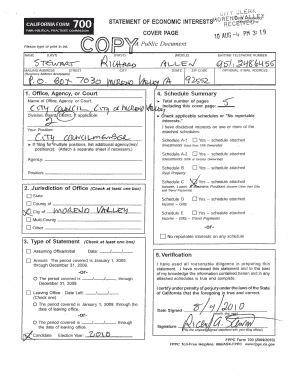 CALIFORNIA FORM 700
FAIR POLITICAL PRACTICES COMMISSION
STATEMENT OF ECONOMIC INTERESTS
COVER PAGE
A Public Document
COPY
CITY CLERK
MORENO VALLEY
RECEIVED
10 AUG -4 PM 3:19
Please type or print in ink.
NAME (LAST) (FIRST) (MIDDLE) DAYTIME TELEPHONE NUMBER
STEWART RICHARD ALLEN 951-248-6455
MAILING ADDRESS STREET CITY STATE ZIP CODE OPTIONAL: E-MAIL ADDRESS
(Business Address Acceptable)
P.O. BOX 7030 MORENO VALLEY CA 92552
1. Office, Agency, or Court
Name of Office, Agency, or Court:
CITY COUNCIL, City of MORENO VALLEY
Division, Board, District, if applicable:
2
Your Position:
CITY COUNCILMEMBER
If filing for multiple positions, list additional agency(ies)/
position(s): (Attach a separate sheet if necessary.)
Agency:
Position:
2. Jurisdiction of Office (Check at least one box)
State
County of
City of MORENO VALLEY
Multi-County
Other
3. Type of Statement (Check at least one box)
Assuming Office/Initial Date:
Annual: The period covered is January 1, 2009,
through December 31, 2009.
-or-
The period covered is through
December 31, 2009.
Leaving Office Date Left:
(Check one)
The period covered is January 1, 2009, through the
date of leaving office.
-or-
The period covered is through
the date of leaving office.
Candidate Election Year: 2010
4. Schedule Summary
Total number of pages
including this cover page: 5
Check applicable schedules or "No reportable
interests."
I have disclosed interests on one or more of the
attached schedules:
Schedule A-1 Yes – schedule attached
Schedule A-2 Yes – schedule attached
Schedule B Yes – schedule attached
Schedule C Yes – schedule attached
Schedule D Yes – schedule attached
Income – Gifts
Schedule E Yes – schedule attached
-or-
No reportable interests on any schedule
5. Verification
I have used all reasonable diligence in preparing this
statement. I have reviewed this statement and to the best
of my knowledge the information contained herein and in any
attached schedules is true and complete.
I certify under penalty of perjury under the laws of the State
of California that the foregoing is true and correct.
Date Signed 8/4/2010
Signature
FPPC Form 700 (2009/2010)
FPPC Toll-Free Helpline: 866/ASK-FPPC www.fppc.ca.gov